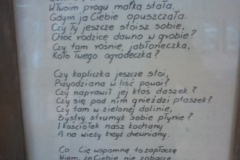 W twoim progu matka stała,
Gdym ja Ciebie opuszczała.
Czy Ty jeszcze stoisz sobie,
Choć rodzice dawno w grobie?
Czy tam rośnie, jabłoneczka,
Koło twego ogródeczka?
Czy kapliczka jeszcze stoi,
Przyodziana w liść powoi?
Czy naprawił jej ktoś daszek?
Czy się pod nim gnieździ ptaszek?
Czy tam w zielonej dolinie,
Bystry strumyk sobie płynie?
I kościółek nasz kochany
A na wieży krzyż drewniany.
Co Cię wspomnę to zapłaczę
Wiem, że Ciebie nie zobaczę